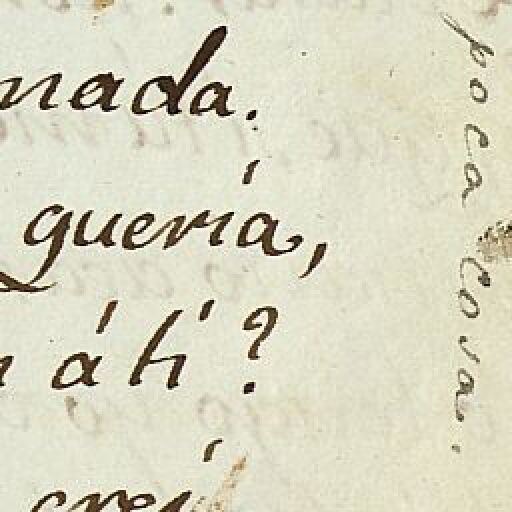 nada.
quería,
á tí?
creí
poca cosa.